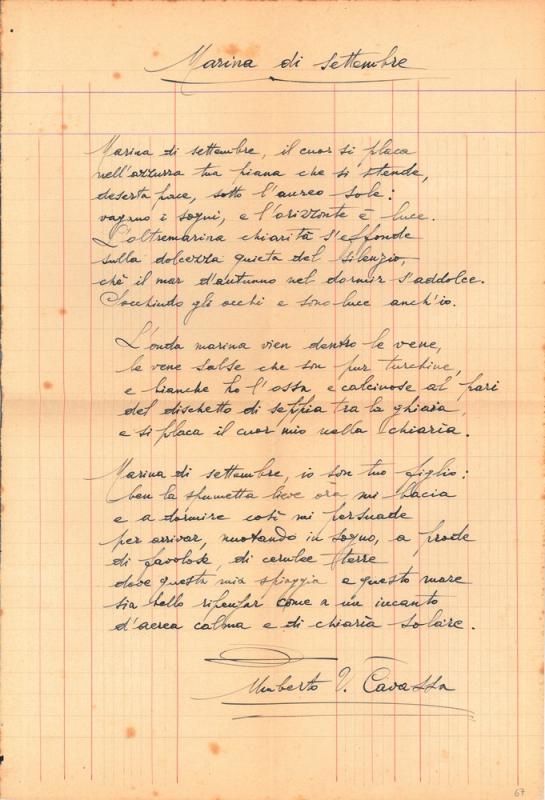 Marina di settembre
Marina di settembre, il cuor si placa
nell'azzurra tua piana che si stende,
deserta pace, sotto l'aureo sole:
vagano i sogni, e l'orizzonte è luce.
L'oltremarina chiarità s'effonde
sulla dolcezza quieta del silenzio,
chè il mar d'autunno nel dormir s'addolce.
Socchiudo gli occhi e sono luce anch'io.
L'onda marina vien dentro le vene,
le vene salse che son pur turchine,
e bianche ho l'ossa e calcinose al pari
del dischetto di seppia tra la ghiaia
e si placa il cuor mio nella chiarìa.
Marina di settembre, io son tuo figlio:
ben la spumetta lieve ora mi bacia
e a dormire così mi persuade
per arrivar, nuotando in sogno, a prode
di favolose, di cerulee terre
dove questa mia spiaggia e questo mare
sia bello ripensar come a un incanto
d'aerea calma e di chiarìa solare.
Umberto V. Cavassa
67